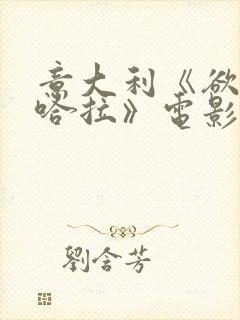 意大利《欲
哈拉》電影
劉含芳